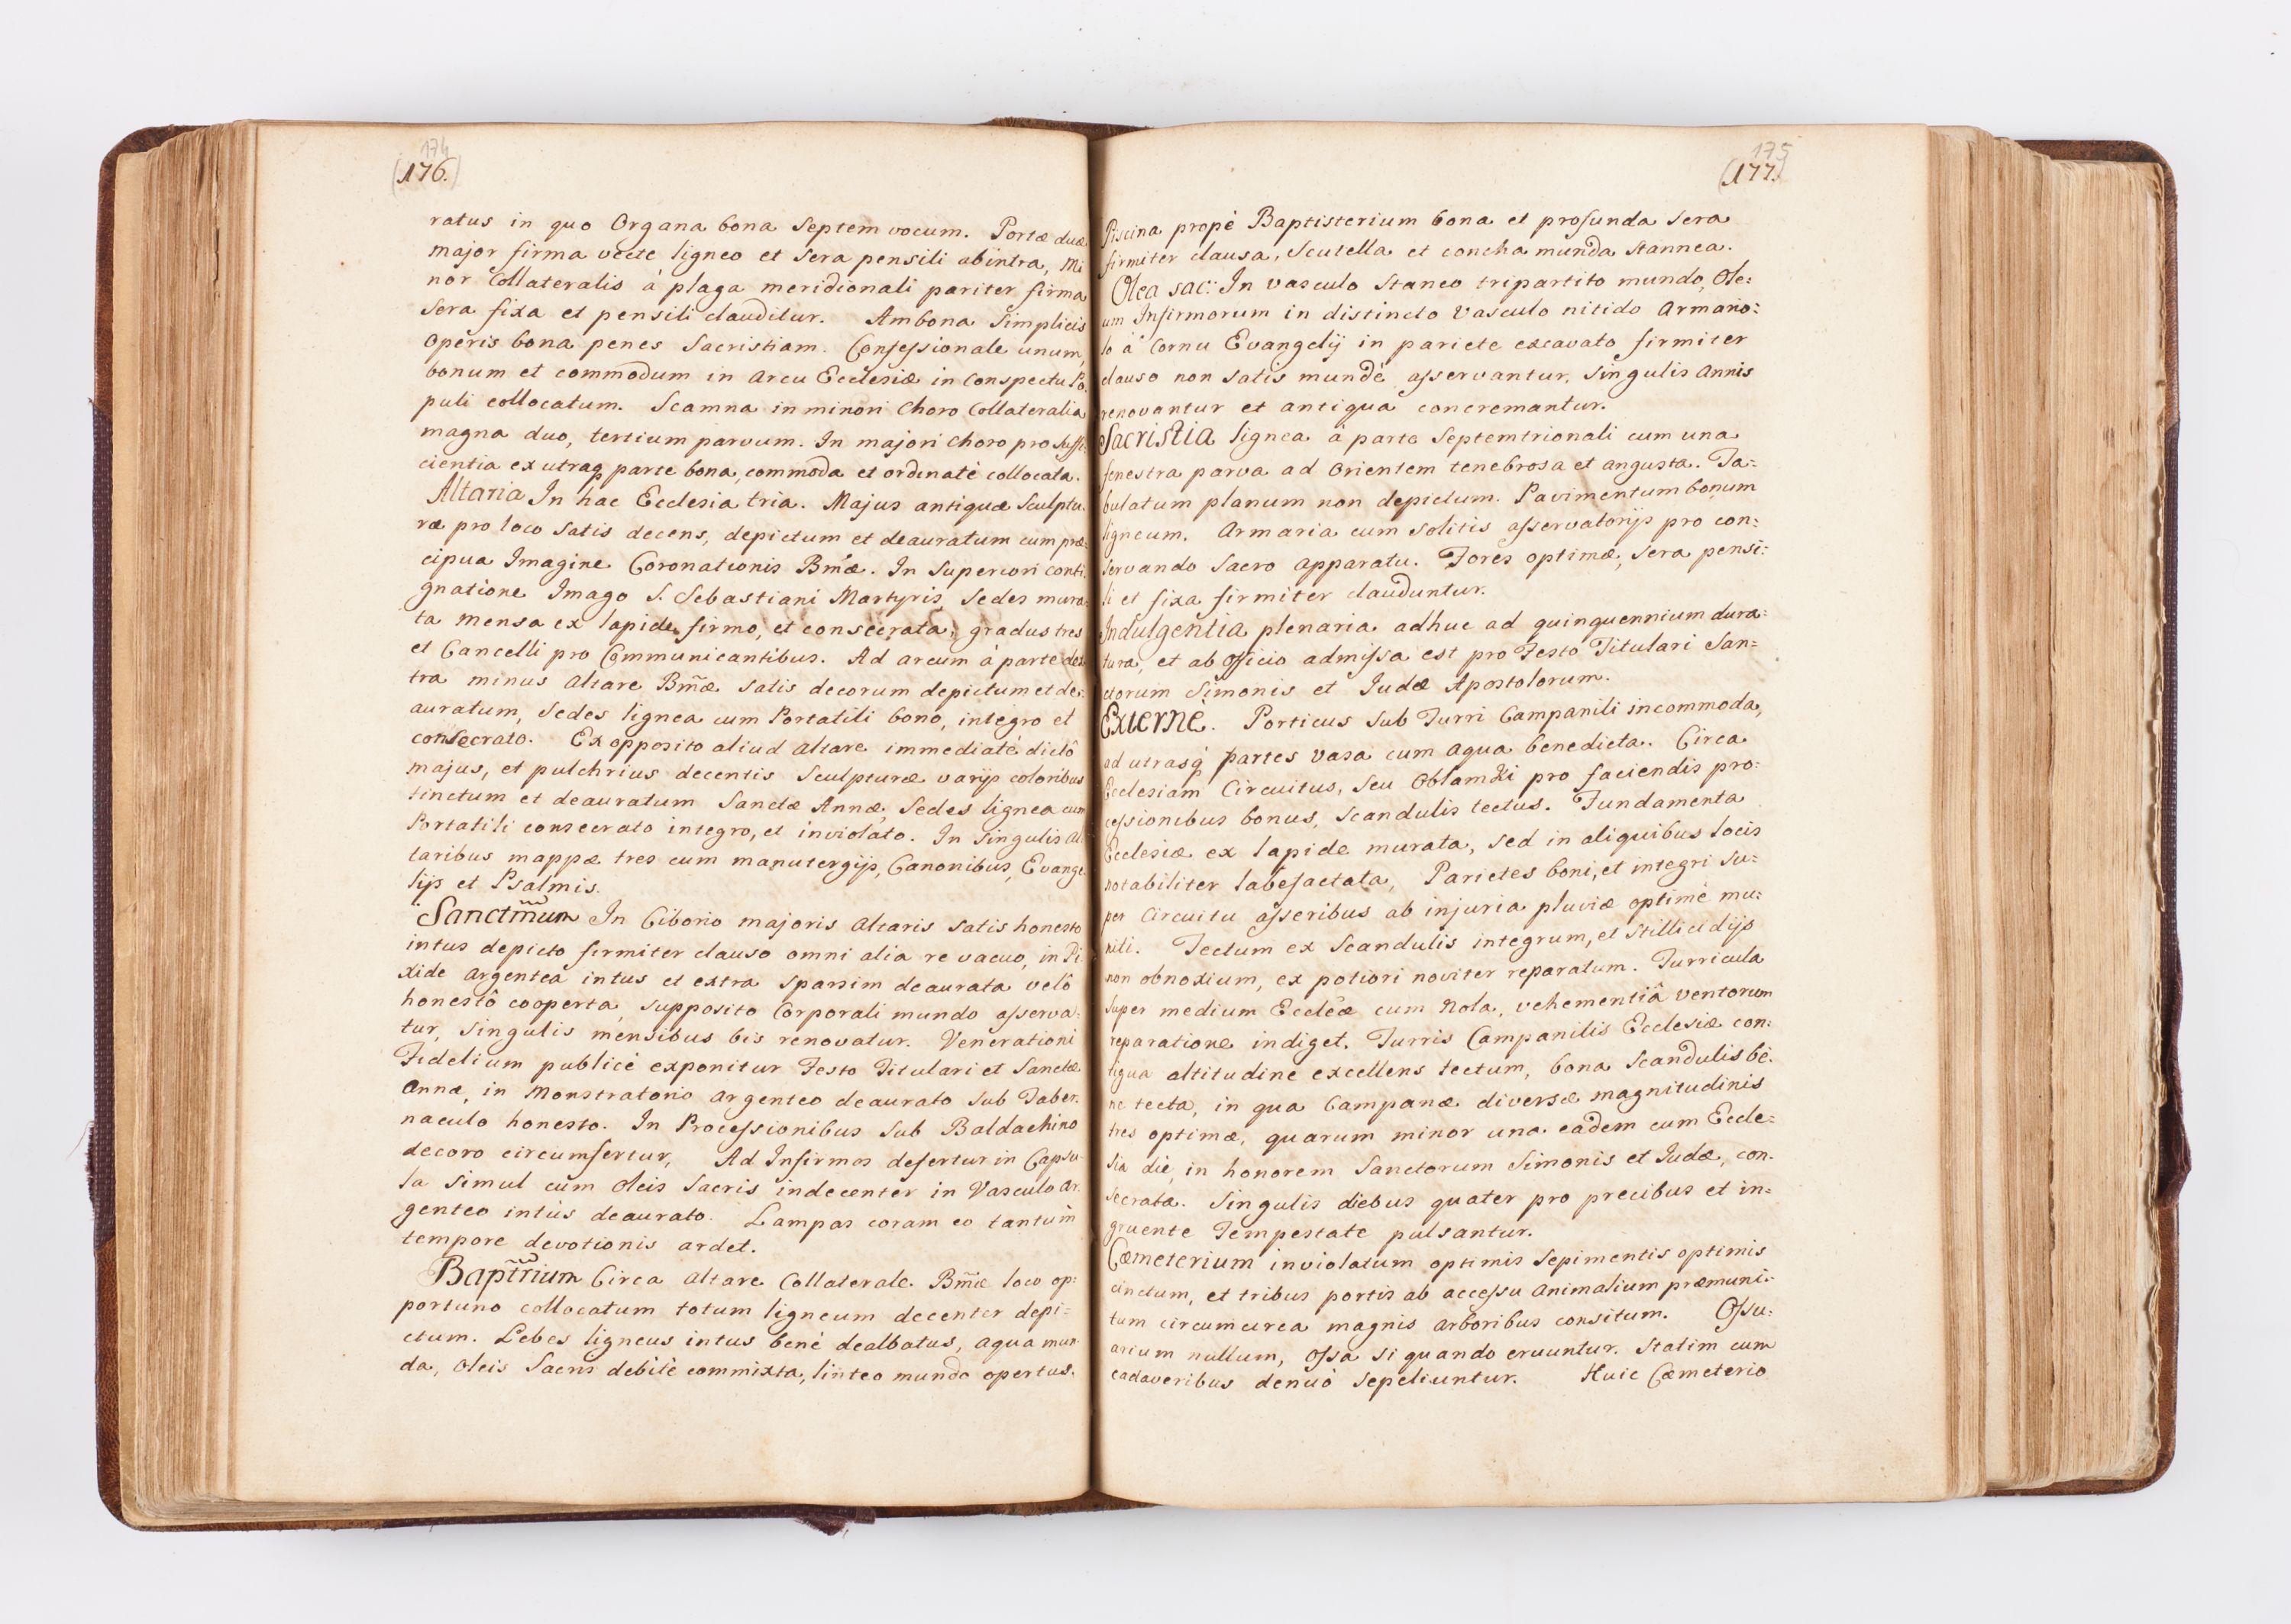 174
(176.)
ratus in quo Organa bona Septem vocum. Portæ duæ
major firma vecte ligneo et Sera pensili abintra, Mi
nor Collateralis à plaga meridionali pariter firma
Sera fixa et pensili clauditur. Ambona Simplicis
Operis bona penes Sacristiam. Confessionale unum,
bonum et commodum in Arcu Ecclesiæ in Conspectu Po
puli collocatum. Scamna in minori Choro Collateralia
magna duo, tertium parvum. In majori Choro pro Suffi-
cientia ex utraq parte bona, commoda et ordinatè collocata.
Altaria In hac Ecclesia tria. Majus antiquæ Sculptu-
ræ pro loco Satis decens, depictum et deauratum cum præ-
cipua Imagine Coronationis Bmæ. In Superiori conti-
gnatione Imago S. Sebastiani Martyris, Sedes mura-
ta mensa ex lapide firmo, et consecrata, gradus tres
et Cancelli pro Communicantibus. Ad arcum à parte dex
tra minus Altare Bm̃æ Satis decorum depictum et de-
auratum, Sedes lignea cum Portatili bono, integro et
consecrato. Ex opposito aliud Altare immediatè dictô
majus, et pulchrius decentis Sculpturæ varijs coloribus
tinctum et deauratum Sanctæ Annæ, Sedes lignea cum
Portatili consecrato integro, et inviolato. In Singulis Al
taribus mappæ tres cum manutergijs, Canonibus, Evange
lijs et Psalmis.
Sanctm̃um In Ciborio majoris Altaris Satis honesto
intus depicto firmiter clauso omni alia re vacuo, in Pi
xide Argentea intus et extra Sparsim deaurata velô
honestô cooperta, Supposito Corporali mundo asserva-
tur, Singulis mensibus bis renovatur. Venerationi
Fidelium publicè exponitur Festo Titulari et Sanctæ
Annæ, in Monstratorio Argenteo deaurato Sub Taber-
naculo honesto. In Processionibus Sub Baldachino
decoro circumfertur, Ad Infirmos defertur in Capsu-
la Simul cum Oleis Sacris indecenter in Vasculo Ar-
genteo intùs deaurato. Lampas coram eo tantùm
tempore devotionis ardet.
Bapt̃rium Circa Altare Collaterale Bm̃æ loco op-
portuno collocatum totum ligneum decenter depi-
ctum. Lebes ligneus intus benè dealbatus, aqua mun
da, Oleis Sacris debitè commixta, linteo mundo opertus.
175
(177.)
Piscina propè Baptisterium bona et profunda Sera
firmiter clausa, Scutella et concha munda Stannea.
Olea sac: In vasculo Staneo tripartito mundo, Ole-
um Infirmorum in distincto Vasculo nitido Armario-
lo à Cornu Evangelij in pariete excavato firmiter
clauso non Satis mundè asservantur, Singulis Annis
renovantur et antiqua concremantur.
Sacristia lignea à parte Septemtrionali cum una
fenestra parva ad Orientem tenebrosa et angusta. Ta-
bulatum planum non depictum. Pavimentum bonum
ligneum. Armaria cum Solitis asservatorijs pro con-
servando Sacro apparatu. Fores optimæ, Sera pensi-
li et fixa firmiter clauduntur.
Indulgentia plenaria adhuc ad quinquennium dura-
tura, et ab Officio admissa est pro Festo Titulari San-
ctorum Simonis et Iudæ Apostolorum.
Externè. Porticus Sub Turri Campanili incommoda,
ad utrasq́ partes vasa cum Aqua benedicta. Circa
Ecclesiam Circuitus, Seu Oblamki pro faciendis pro-
cessionibus bonus, Scandulis tectus. Fundamenta
Ecclesiæ ex lapide murata, Sed in aliquibus locis
notabiliter labefactata, Parietes boni, et integri Su-
per Circuitu asseribus ab injuria pluviæ optimè mu-
niti. Tectum ex Scandulis integrum, et Stillicidijs
non obnoxium, ex potiori noviter reparatum. Turricula
Super medium Ecclẽæ cum Nola, vehementiâ Ventorum
reparatione indiget. Turris Campanilis Ecclesiæ con-
tigua altitudine excellens tectum, bona Scandulis be-
ne tecta, in qua Campanæ diversæ magnitudinis
tres optimæ, quarum minor una eâdem cum Eccle-
sia die, in honorem Sanctorum Simonis et Iudæ, con-
secrata. Singulis diebus quater pro precibus et in-
gruente Tempestate pulsantur.
Cæmeterium inviolatum optimis Sepimentis optimis
cinctum, et tribus portis ab accessu Animalium præmuni-
tum circumcirca magnis Arboribus consitum. Ossu-
arium nullum, Ossa Si quando eruuntur. Statim cum
cadaveribus denuò Sepeliuntur. Huic Cæmeterio